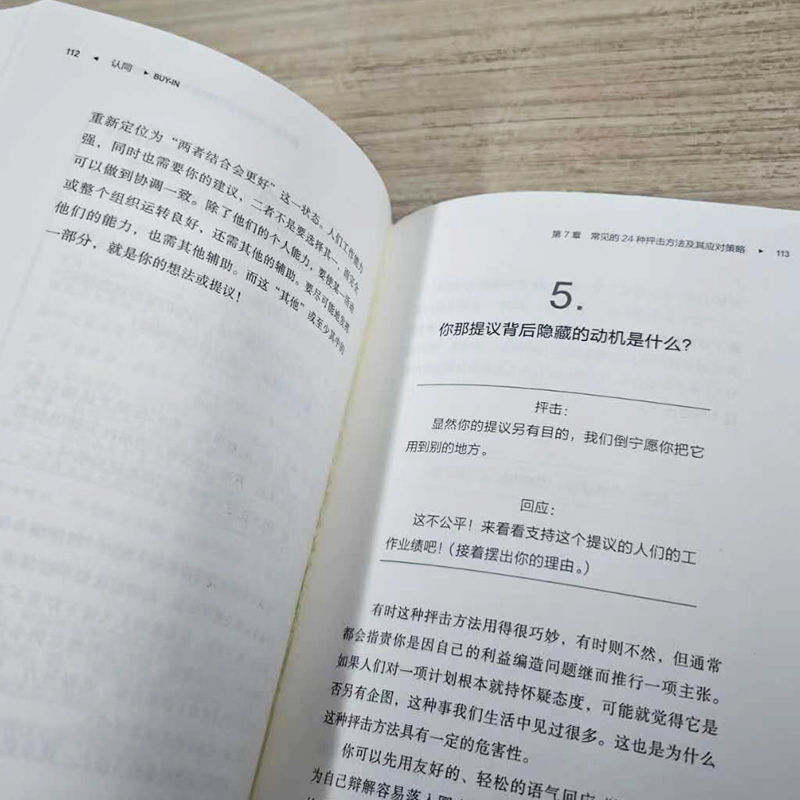 112 ◂ 认同 ▸ BUY-IN
重新定位为“两者结合会更好”这一状态。人们工作能力
强，同时也需要你的建议，二者不是要选择其一，而完全
可以做到协调一致。除了他们的个人能力，要使某一活动
或整个组织运转良好，还需其他的辅助。要尽可能地发挥
他们的能力，也需其他辅助。而这“其他”或至少其中的
一部分，就是你的想法或提议！
第 7 章 常见的 24 种抨击方法及其应对策略 ▸ 113
5.
你那提议背后隐藏的动机是什么？
抨击：
显然你的提议另有目的，我们倒宁愿你把它
用到别的地方。
回应：
这不公平！来看看支持这个提议的人们的工
作业绩吧！（接着摆出你的理由。）
有时这种抨击方法用得很巧妙，有时则不然，但通常
都会指责你是因自己的利益编造问题继而推行一项主张。
如果人们对一项计划根本就持怀疑态度，可能就觉得它是
否另有企图，这种事我们生活中见过很多。这也是为什么
这种抨击方法具有一定的危害性。
你可以先用友好的、轻松的语气回应
为自己辩解容易落入圈